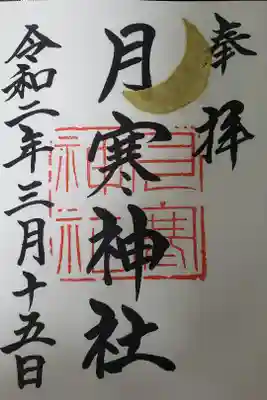 奉拝
月寒神社
令和二年三月十五日
月寒
神社